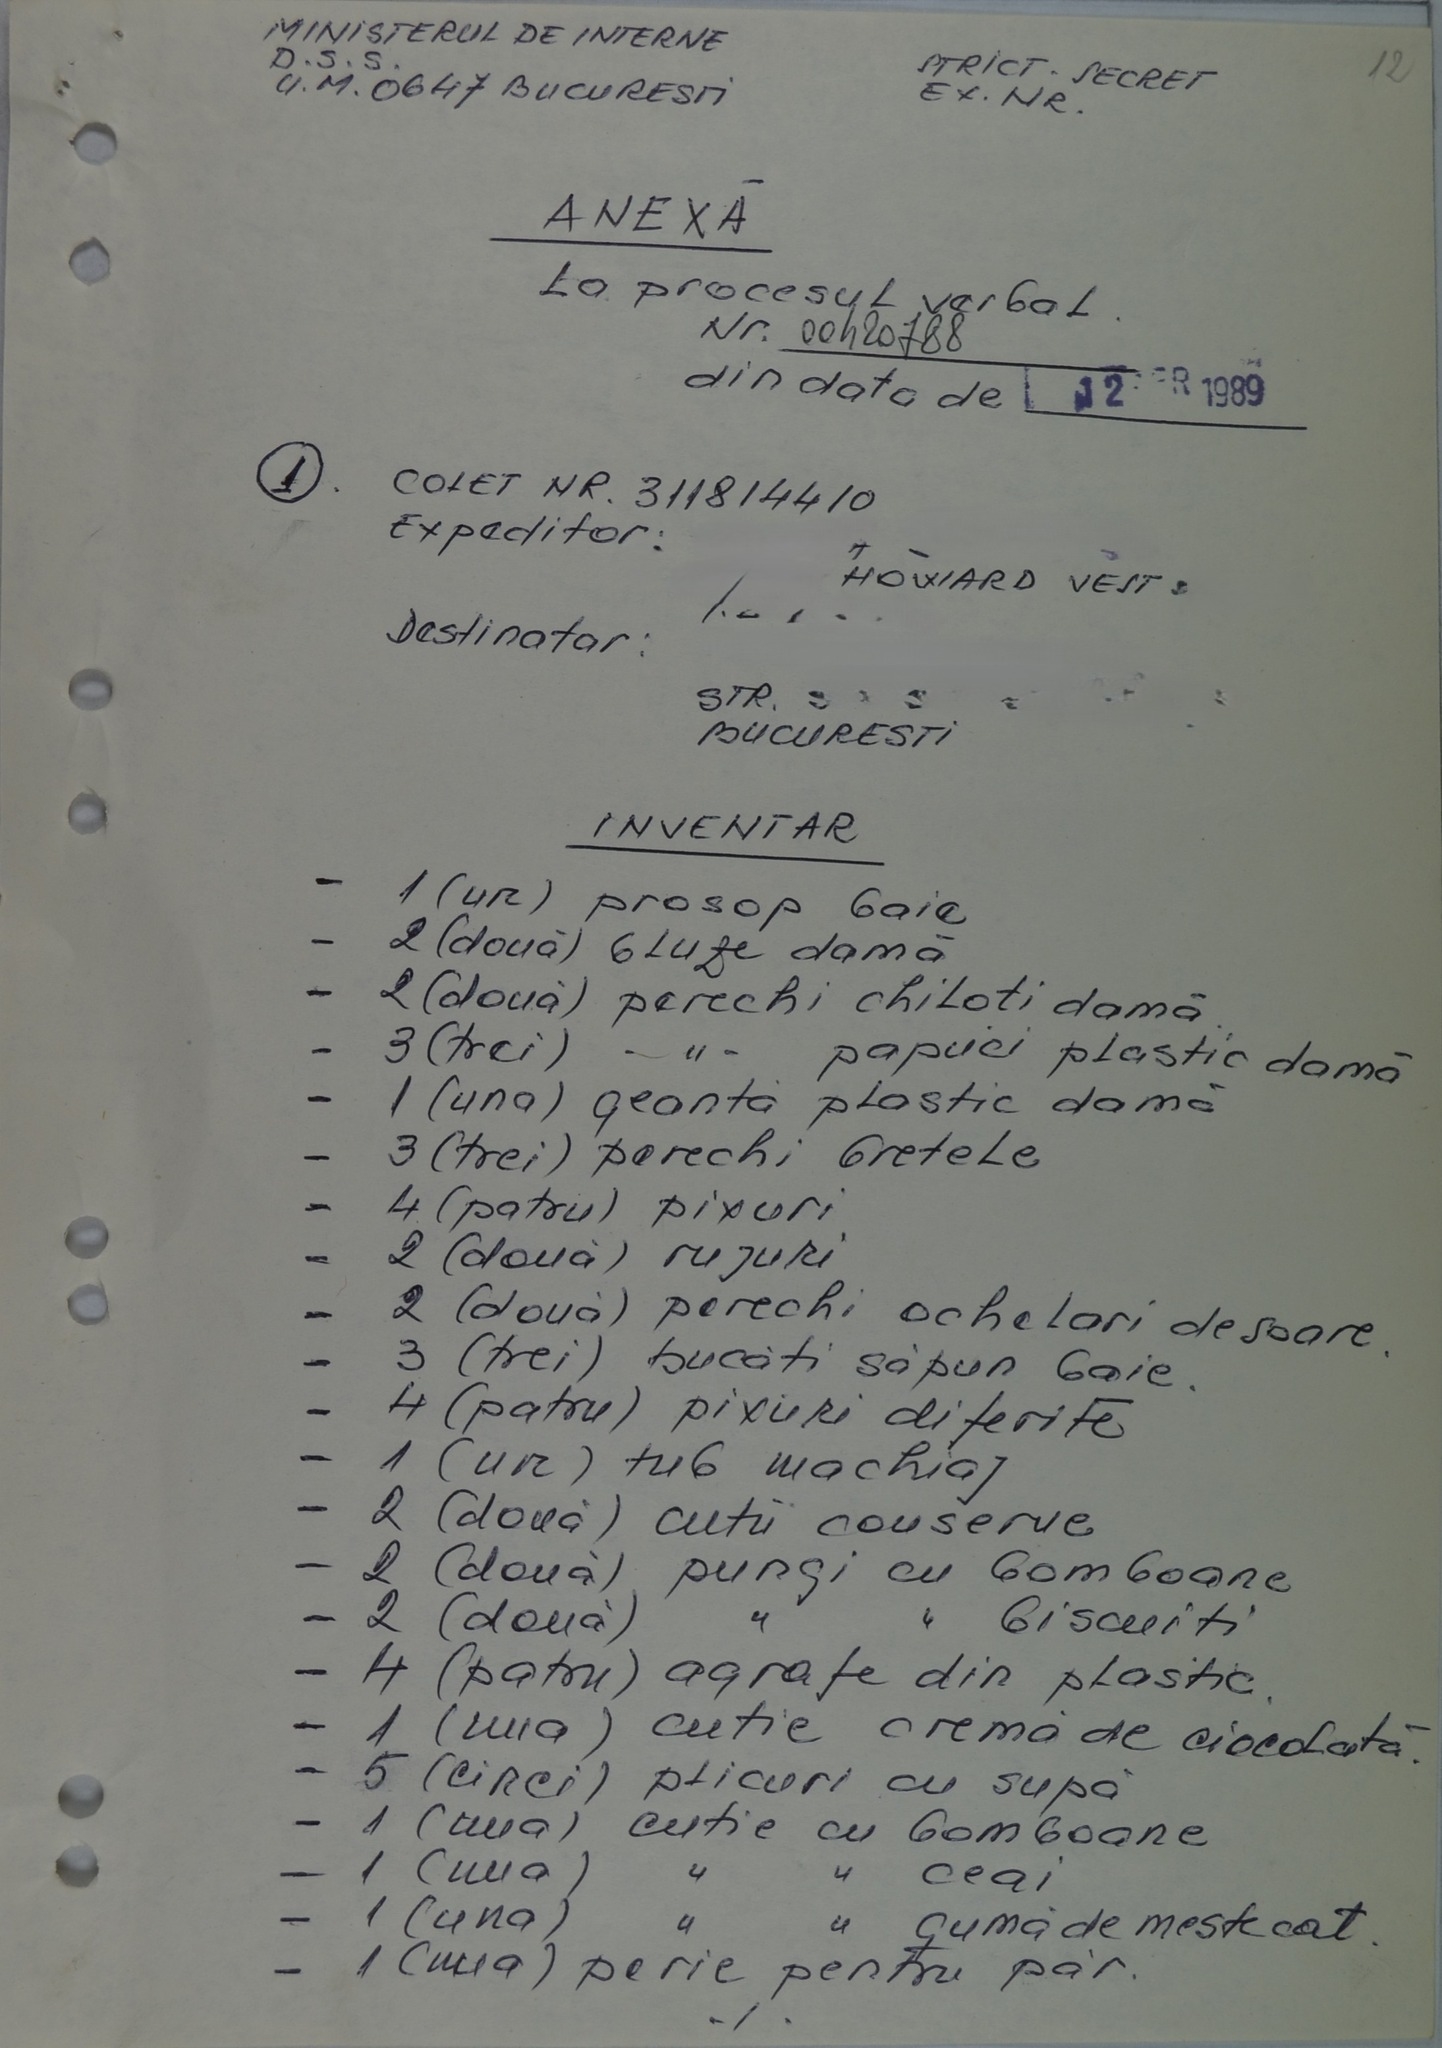 12
MINISTERUL DE INTERNE
D.S.S.
U.M. 0647 BUCURESTI
STRICT. SECRET
EX. NR.
ANEXĂ
La procesul verbal.
Nr. 00420788
din data de 12 1989
1. COLET NR. 311814410
Expeditor:
HOWARD VEST
Destinatar:
STR.
BUCURESTI
INVENTAR
- 1 (un) prosop baie
- 2 (două) bluze damă
- 2 (două) perechi chiloti damă
- 3 (trei) -"- papuci plastic damă
- 1 (una) geantă plastic damă
- 3 (trei) perechi bretele
- 4 (patru) pixuri
- 2 (două) rujuri
- 2 (două) perechi ochelari de soare.
- 3 (trei) bucăti săpun baie.
- 4 (patru) pixuri diferite
- 1 (un) tub machiaj
- 2 (două) cutii conserve
- 2 (două) pungi cu bomboane
- 2 (două) " " biscuiti
- 4 (patru) agrafe din plastic.
- 1 (una) cutie cremă de ciocolată.
- 5 (cinci) plicuri cu supă
- 1 (una) cutie cu bomboane
- 1 (una) " " ceai
- 1 (una) " " gumă de mestecat.
- 1 (una) perie pentru păr.
-/.